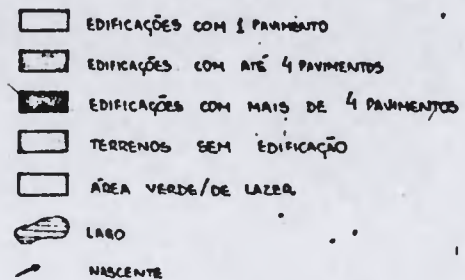 EDIFICAÇÕES COM 1 PAVIMENTO
EDIFICAÇÕES COM ATÉ 4 PAVIMENTOS
EDIFICAÇÕES COM MAIS DE 4 PAVIMENTOS
TERRENOS SEM EDIFICAÇÃO
ÁREA VERDE/DE LAZER
LAGO
NASCENTE